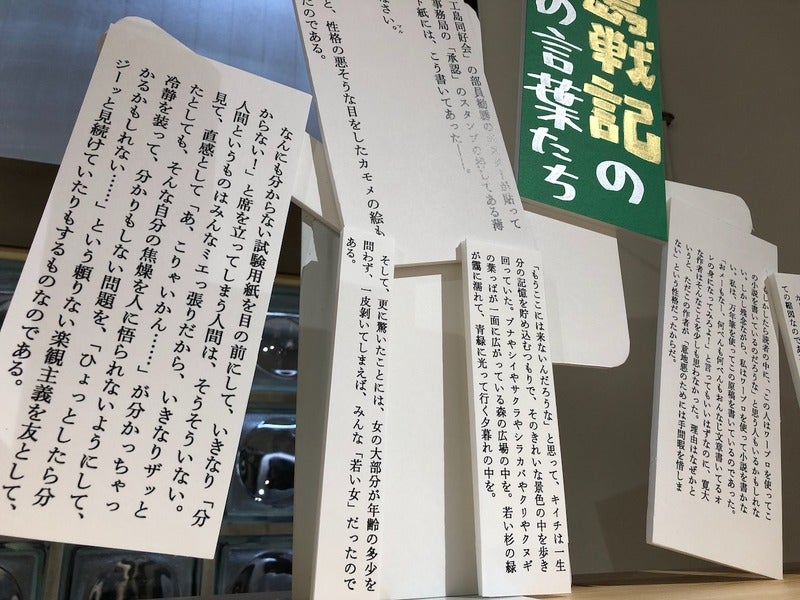 島戦記の
の言葉たち
ての範囲なので
もしかしたら読者の中に、この人はワープロを使ってこ
の小説を書いているのだろうな」と思う人もいるかもしれな
い。しかし残念ながら、私はワープロを使って小説を書かな
い。私は、万年筆を使ってこの原稿を書いているのであった。
「おメーもなー、何べんも何べんもおんなじ文章書いてるオ
レの身になってみろよ!」と言ってもいいはずなのに、寛大
な作者はそんなことを少しも思わなかった。理由はなぜかと
いうと、ただこの作者が、「意地悪のためには手間暇を惜しま
ない」という性格だったからだ。
工島同好会」の部員勧誘のポスターが貼って
事務局の「承認」のスタンプの捺してある薄
ト紙には、こう書いてあった――。
なさい。
と、性格の悪そうな目をしたカモメの絵も
たのである。
「もうここには来ないんだろうな」と思って、キイチは一生
分の記憶を貯め込むつもりで、そのきれいな景色の中を歩き
回っていた。ブナやシイやサクラやシラカバやクリやクヌギ
の葉っぱが一面に広がっている森の広場の中を。若い杉の緑
が靄に濡れて、青緑に光って行く夕暮れの中を。
そして、更に驚いたことには、女の大部分が年齢の多少を
問わず、一皮剥いてしまえば、みんな「若い女」だったので
ある。
なんにも分からない試験用紙を目の前にして、いきなり「分
からない!」と席を立ってしまう人間は、そうそういない。
人間というものはみんなミエっ張りだから、いきなりザッと
見て、直感として「あ、こりゃいかん……」が分かっちゃっ
たとしても、そんな自分の焦燥を人に悟られないようにして、
冷静を装って、分かりもしない問題を、「ひょっとしたら分
かるかもしれない……」という頼りない楽観主義を友として、
ジーッと見続けていたりもするものなのである。